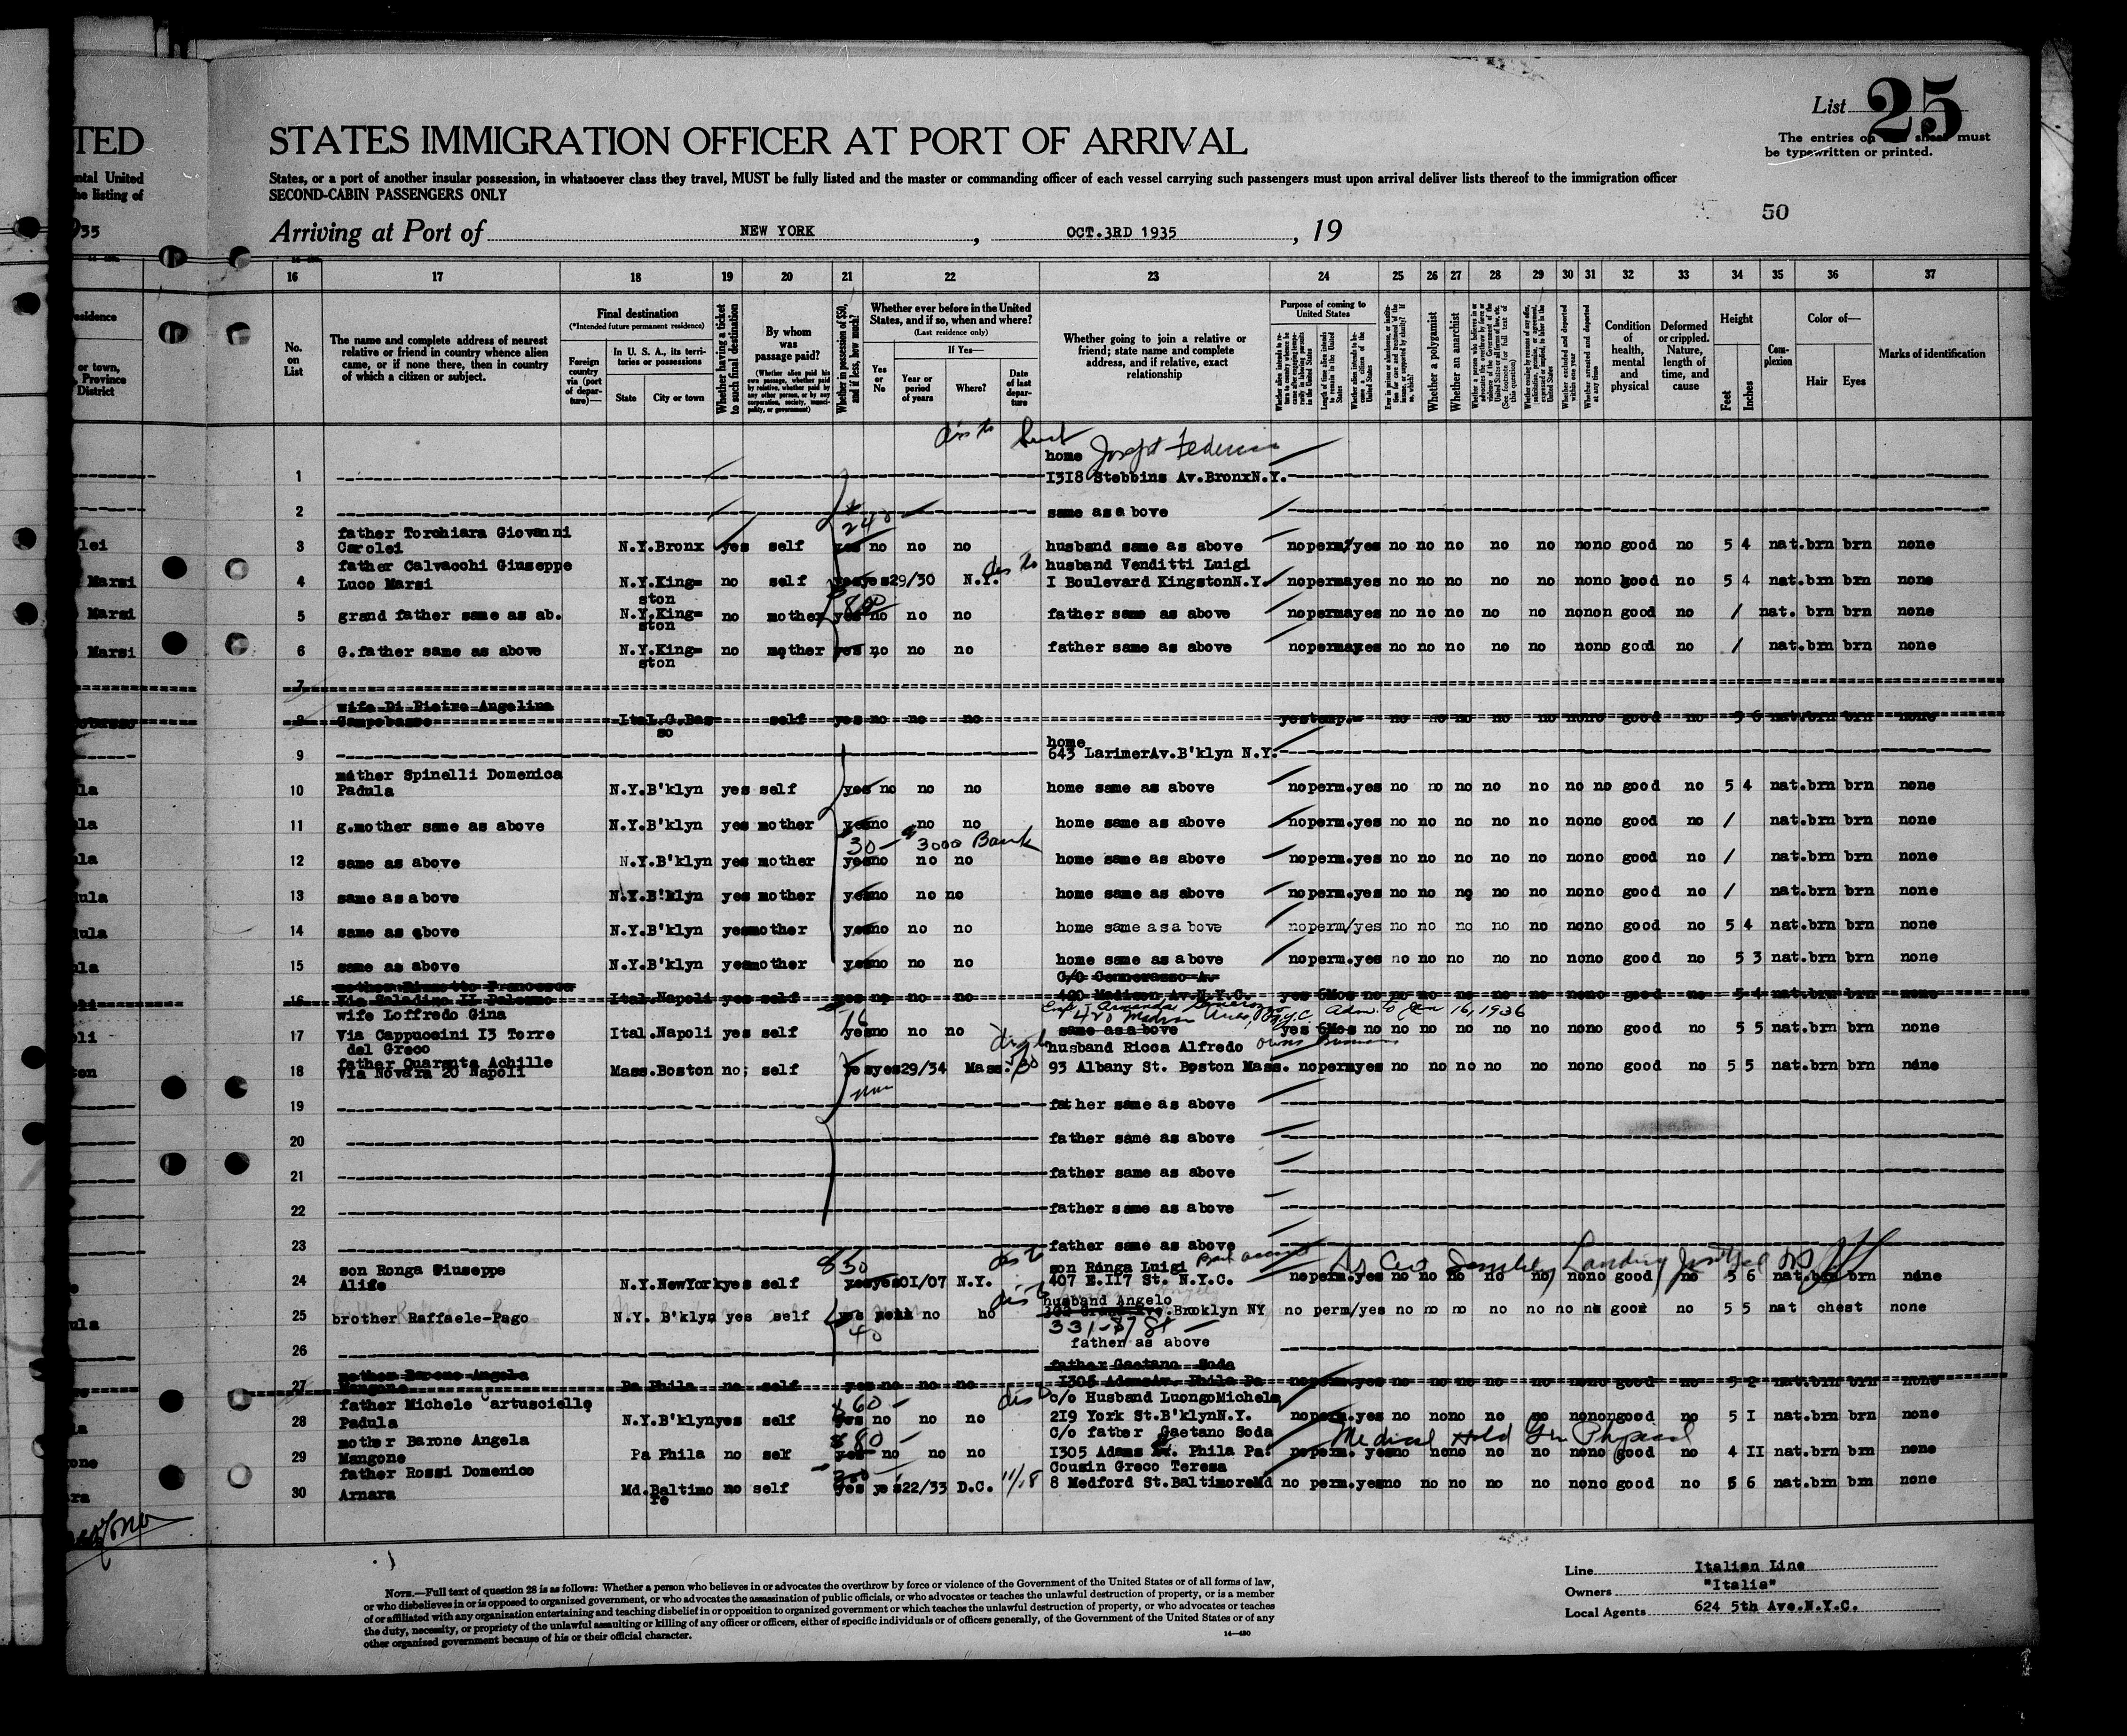 TED
ntal United
he listing of
35
List 25
The entries on sheet must
be typewritten or printed.
STATES IMMIGRATION OFFICER AT PORT OF ARRIVAL
States, or a port of another insular possession, in whatsoever class they travel, MUST be fully listed and the master or commanding officer of each vessel carrying such passengers must upon arrival deliver lists thereof to the immigration officer
SECOND-CABIN PASSENGERS ONLY
50
Arriving at Port of NEW YORK, OCT.3RD 1935, 19
16 17 18 19 20 21 22 23 24 25 26 27 28 29 30 31 32 33 34 35 36 37
No. on List
The name and complete address of nearest relative or friend in country whence alien came, or if none there, then in country of which a citizen or subject.
Final destination
(*Intended future permanent residence)
Foreign country via (port of departure)—
In U. S. A., its territories or possessions
State City or town
Whether having a ticket to such final destination
By whom was passage paid?
(Whether alien paid his own passage, whether paid by relative, whether paid by any other person, or by any corporation, society, municipality, or government)
Whether in possession of $50, and if less, how much?
Whether ever before in the United States, and if so, when and where?
(Last residence only)
Yes or No
If Yes—
Year or period of years
Where?
Date of last departure
Whether going to join a relative or friend; state name and complete address, and if relative, exact relationship
Purpose of coming to United States
Length of time alien intends to remain in the United States
Whether a polygamist
Whether an anarchist
Condition of health, mental and physical
Deformed or crippled. Nature, length of time, and cause
Height
Feet Inches
Complexion
Color of—
Hair Eyes
Marks of identification
home Joseph
1 1318 Stebbins Av.BronxN.Y.
2 same as above
father Torchiara Giovanni
3 Carolei N.Y.Bronx yes self yes no no no husband same as above noperm/yes no no no no no nono good no 5 4 nat.brn brn none
father Calvacchi Giuseppe husband Venditti Luigi
4 Luco Marsi N.Y.King= no self yesyes29/30 N.Y. I Boulevard KingstonN.Y. nopermayes no no no no no nono good no 5 4 nat.brn brn none
ston
5 grand father same as ab. N.Y.King= no mother yes no no no father same as above nopermayes no no no no no nonon good no / nat. brn brn none
ston
6 G.father same as above N.Y.King= no mother yes no no no father same as above nopermayes no no no no no nono good no / nat.brn brn none
ston
7
wife Di Pietro Angelina
8 Campobasso Ital.C.Bas self yes no no no yestemp. no no no no no nono good no 5 6 nat.brn brn none
so
home
9 643 LarimerAv.B'klyn N.Y.
mother Spinelli Domenica
10 Padula N.Y.B'klyn yes self yes no no no home same as above noperm.yes no no no no no no no good no 5 4 nat.brn brn none
11 g.mother same as above N.Y.B'klyn yes mother yesno no no home same as above noperm.yes no no no no no nono good no / nat.brn brn none
30 3000 Bank
12 same as above N.Y.B'klyn yes mother yesno no no home same as above noperm.yes no no no no no nono good no / nat.brn brn none
13 same as above N.Y.B'klyn yes mother yesno no no home same as above noperm.yes no no no no no nono good no / nat.brn brn none
14 same as above N.Y.B'klyn yesmother yesno no no home same as above noperm/yes no no no no no nono good no 5 4 nat.brn brn none
15 same as above N.Y.B'klyn yesmother yesno no no home same as above noperm.yes no no no no no nono good no 5 3 nat.brn brn none
16 Via Saladino II Palermo Ital.Napoli yes self yes no no no 420 Madison Av.N.Y.C. yes 6Mos no no no no no nono good no 5 4 nat.brn brn none
wife Loffredo Gina 420 Madison Ave, N.Y.C. adm. to Jan 16, 1936
17 Via Cappuccini I3 Torre Ital.Napoli yes self yesno no no same as above yes 6Mos no no no no no nono good no 5 5 nat.brn brn none
del Greco husband Ricca Alfredo
father Quaranta Achille
18 Via Novara 20 Napoli Mass.Boston no; self yesyes29/34 Mass. 93 Albany St. Boston Mass. nopermyes no no no no no nono good no 5 5 nat.brn brn none
19 father same as above
20 father same as above
21 father same as above
22 father same as above
23 father same as above
son Ronga Giuseppe son Ronga Luigi
24 Alife N.Y.NewYorkyes self yesyes01/07 N.Y. 407 E.117 St. N.Y.C. noperm.yes no no no no no nono good no 5 6 nat.brn brn none
husband Angelo
25 brother Raffaele-Pago N.Y. B'klyn yes self yes no no Brooklyn NY no perm/yes no no no no no no no good no 5 5 nat chest none
331-
26 father as above
mother Barone Angela father Gaetano Soda
27 Mangone Pa Phila no self yes no no no 1305 AdamsAv. Phila Pa noperm.yes no no no no no nono good no 5 2 nat.brn brn none
father Michele artusciello c/o Husband LuongoMichele
28 Padula N.Y.B'klynyes self yes no no no 219 York St.B'klynN.Y. noperm.yes no nono no no nonongood no 5 I nat.brn brn none
mother Barone Angela C/o father Gaetano Soda Medical Hold Phypical
29 Mangone Pa Phila no self yes no no no I305 Adams Phila Pa. noperm. yesno nono no no nono good no 4 II nat.brn brn none
father Rossi Domenico Cousin Greco Teresa
30 Arnara Md.Baltimo no self yes yes22/33 D.C. 11/18 8 Medford St.BaltimoreMd no perm.yesno no no no no nono good no 5 6 nat.brn brn none
re
NOTE.—Full text of question 28 is as follows: Whether a person who believes in or advocates the overthrow by force or violence of the Government of the United States or of all forms of law,
or who disbelieves in or is opposed to organized government, or who advocates the assassination of public officials, or who advocates or teaches the unlawful destruction of property, or is a member
of or affiliated with any organization entertaining and teaching disbelief in or opposition to organized government or which teaches the unlawful destruction of property, or who advocates or teaches
the duty, necessity, or propriety of the unlawful assaulting or killing of any officer or officers, either of specific individuals or of officers generally, of the Government of the United States or of any
other organized government because of his or their official character.
14—480
Line Italian Line
Owners "Italia"
Local Agents 624 5th Ave.N.Y.C.